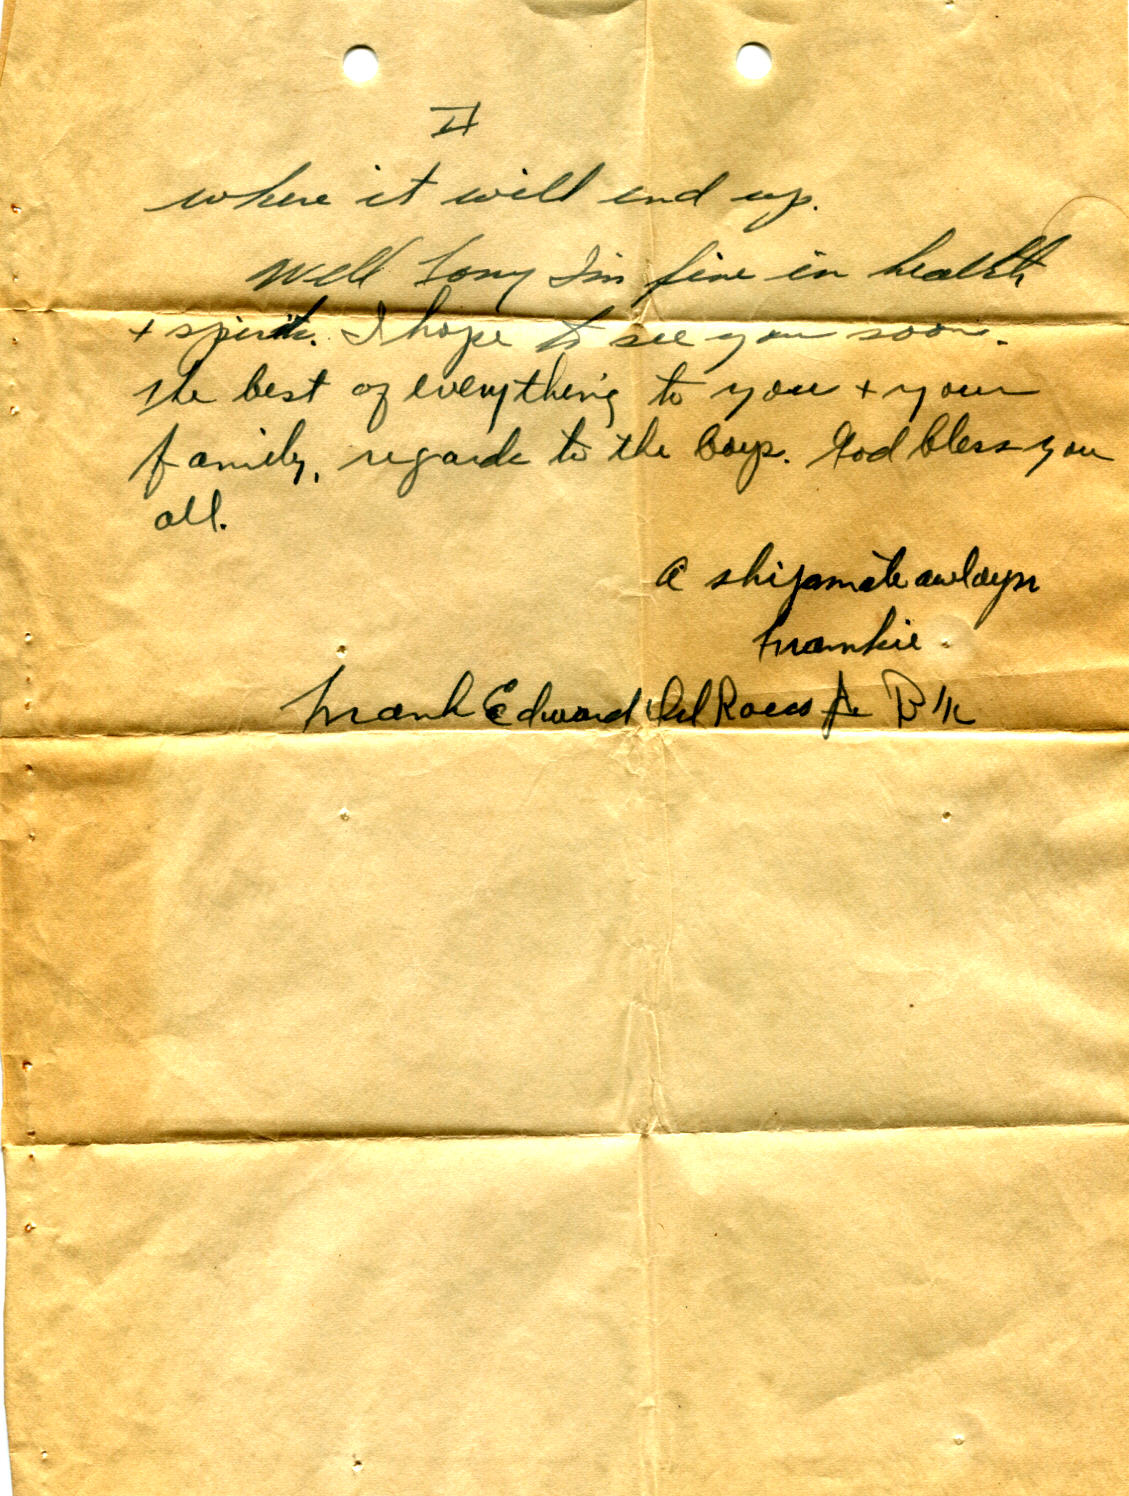 II
where it will end up.
Well Tony I'm fine in health
+ spirits. I hope to see you soon.
The best of everything to you + your
family, regards to the boys. God bless you
all.
A shipmate always
Frankie.
Frank Edward Del Rocco Jr